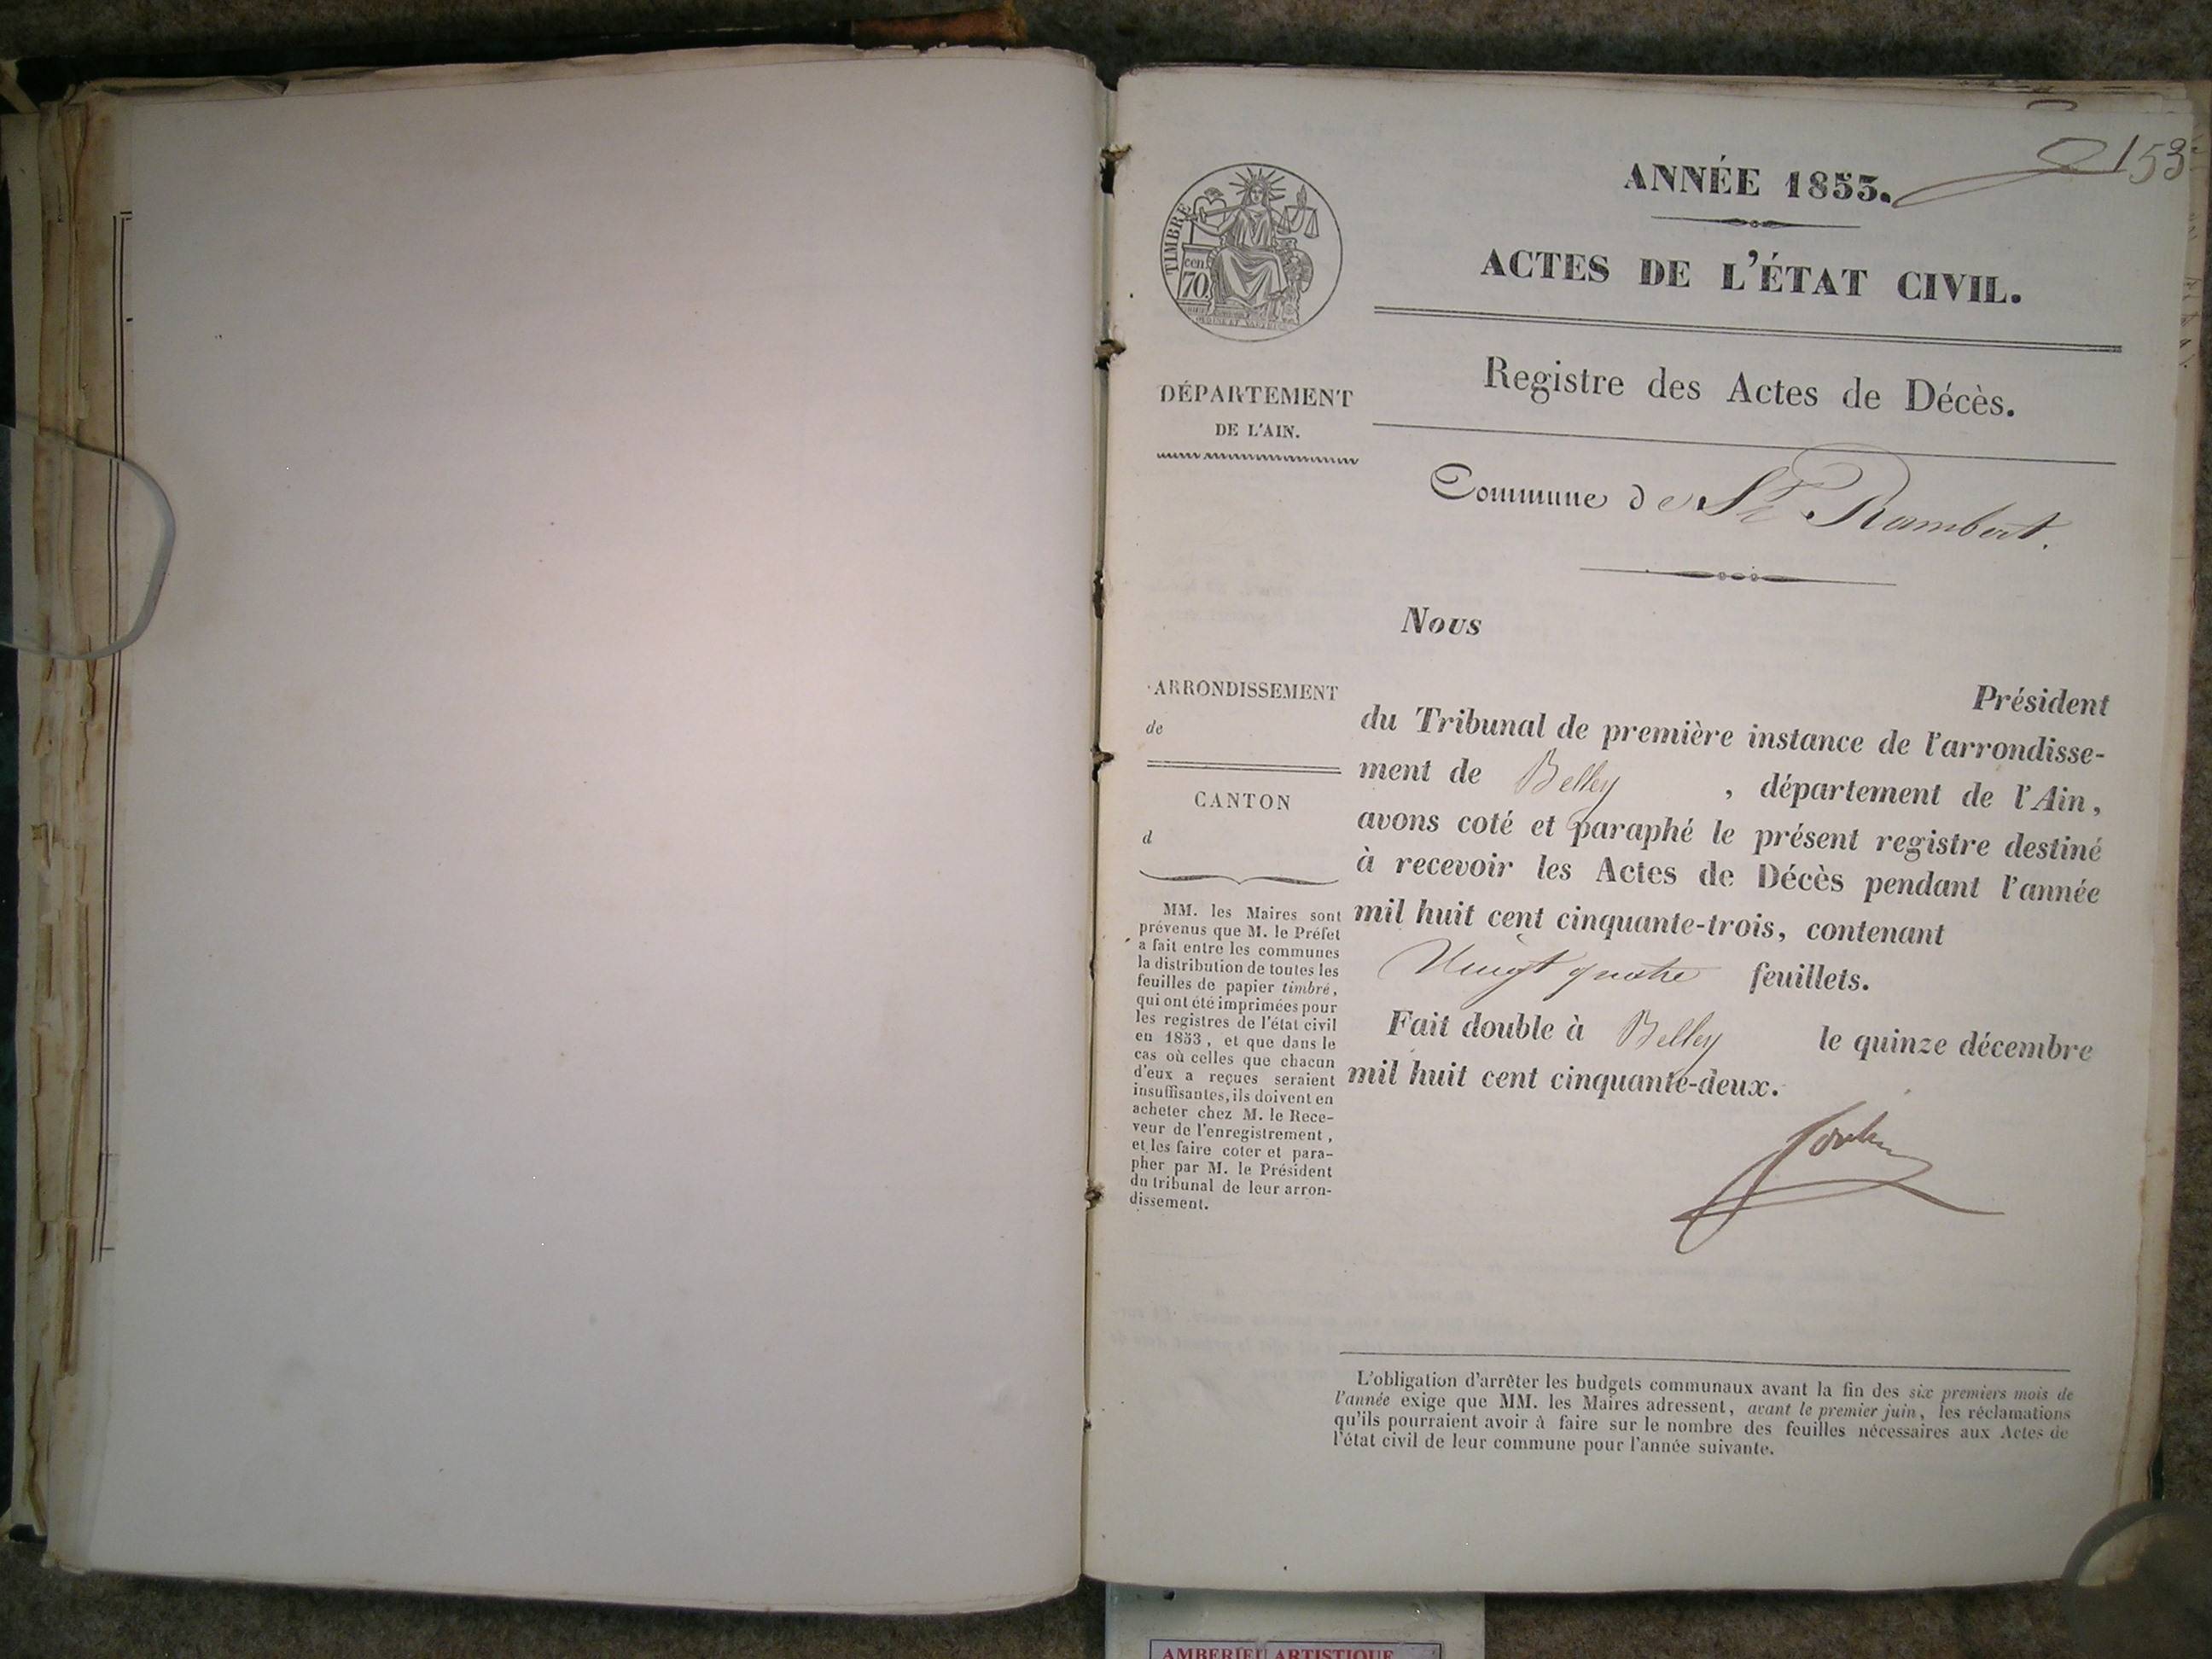 153
ANNÉE 1853.
ACTES DE L'ÉTAT CIVIL.
TIMBRE
cen.
70
DÉPARTEMENT
DE L'AIN.
Registre des Actes de Décès.
Commune de St. Rambert.
Nous
Président
du Tribunal de première instance de l'arrondisse-
ment de Belley , département de l'Ain,
avons coté et paraphé le présent registre destiné
à recevoir les Actes de Décès pendant l'année
mil huit cent cinquante-trois, contenant
Vingt quatre feuillets.
Fait double à Belley le quinze décembre
mil huit cent cinquante-deux.
ARRONDISSEMENT
de
CANTON
d
MM. les Maires sont
prévenus que M. le Préfet
a fait entre les communes
la distribution de toutes les
feuilles de papier timbré,
qui ont été imprimées pour
les registres de l'état civil
en 1853, et que dans le
cas où celles que chacun
d'eux a reçues seraient
insuffisantes, ils doivent en
acheter chez M. le Rece-
veur de l'enregistrement,
et les faire coter et para-
pher par M. le Président
du tribunal de leur arron-
dissement.
L'obligation d'arrêter les budgets communaux avant la fin des six premiers mois de
l'année exige que MM. les Maires adressent, avant le premier juin, les réclamations
qu'ils pourraient avoir à faire sur le nombre des feuilles nécessaires aux Actes de
l'état civil de leur commune pour l'année suivante.
AMBERIEU ARTISTIQUE